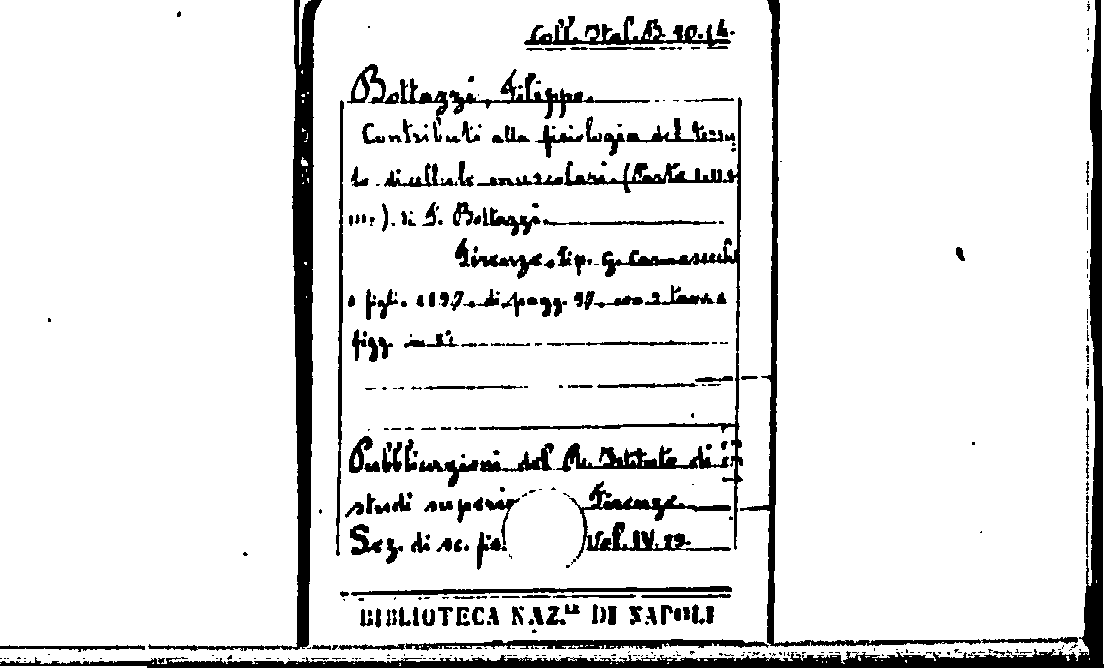 Coll. Ital. B. 10.14.
Bottazzi, Filippo.
Contributi alla fisiologia del tessu
to di cellule muscolari. (Parte
). di F. Bottazzi.
Firenze, Tip. G. Carnesecchi
e figli. 1897. di pagg. 97. con 2 tavv. e
figg. in 8º
Pubblicazioni del R. Istituto di
studi superio Firenze.
Sez. di sc. fis. Vol. IV. 19.
BIBLIOTECA NAZ.LE DI NAPOLI